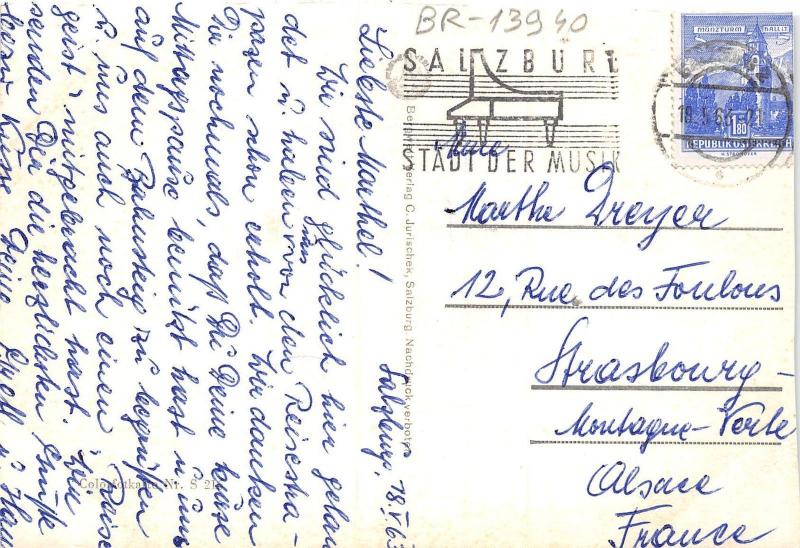 BR-13940
SALZBURG
STADT DER MUSIK
MÜNZTURM HALL I.T.
1.80
REPUBLIK ÖSTERREICH
Mme
Marthe Dreyer
12, Rue des Foulons
Strasbourg-
Montagne-Verte
Alsace
France
Bergland-Verlag C. Jurischek, Salzburg. Nachdruck verboten
Colorfotokarte Nr. S 21
Salzburg, 18.V.63
Liebste Marthel!
Wir sind glücklich hier gelan-
det u. haben uns von den Reisestra-
pazen schon erholt. Wir danken
Dir nochmals, daß Du Deine kurze
Mittagspause benützt hast u. uns
auf dem Bahnsteig zu begrüßen
u. uns auch noch einen Reise
geist mitgebracht hast. Wir
senden Dir die herzlichsten Grüße
Küsse Deine